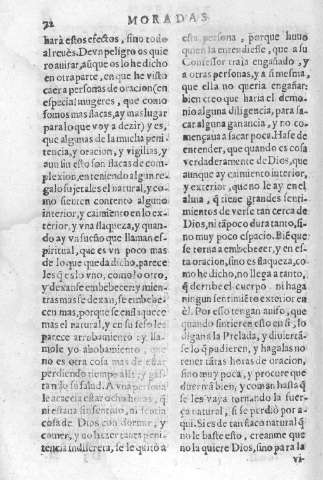 72
MORADAS
hará estos efectos, sino todo
al reués. De vn peligro os quie
ro auisar, aũque os lo he dicho
en otra parte, en que he visto
caer a personas de oracion (en
especial mugeres, que como
somos mas flacas, ay mas lugar
para lo que voy a dezir) y es,
que algunas de la mucha peni-
tencia, y oracion, y vigilias, y
aun sin esto son flacas de com-
plexion, en teniendo algun re-
galo sujetales el natural, y co-
mo sienten contento alguno
interior, y caimiento en lo ex-
terior, y vna flaqueza, y quan-
do ay vn sueño que llaman es-
piritual, que es vn poco mas
de lo que queda dicho, parece
les q̃ es lo vno, como lo otro,
y dexanse embebecer: y mien-
tras mas se dexan, se embebe-
cen mas, porque se enflaquece
mas el natural, y en su seso les
parece arrobamiento: y lla-
mole yo abobamiento, que
no es otra cosa mas de estar
perdiendo tiempo alli: y gas-
tando su salud. A vna persona
le acaecia estar ocho horas, q̃
ni está sin sentido, ni sentia
cosa de Dios con dormir, y
comer, y no hazer tanta peni-
tencia indiscreta, se le quitó a
esta persona, porque huuo
quien la entendiesse, que a su
Confessor traia engañado, y
a otras personas, y a si mesma,
que ella no queria engañar:
bien creo que haria el demo-
nio alguna diligencia, para sa-
car alguna ganancia, y no co-
mençaua a sacar poca. Hase de
entender, que quando es cosa
verdaderamente de Dios, que
aunque ay caimiento interior,
y exterior, que no le ay en el
alma, q̃ tiene grandes senti-
mientos de verse tan cerca de
Dios, ni tãpoco dura tanto, si-
no muy poco espacio. Biẽ que
se torna a embebecer, y en es-
ta oracion, sino es flaqueza, co-
mo he dicho, no llega a tanto,
q̃ derribe el cuerpo ni haga
ningun sentimiẽto exterior en
él. Por esso tengan auiso, que
quando sintieren esto en si, lo
digan a la Prelada, y diuiertã-
se lo q̃ pudieren, y hagalas no
tener tãtas horas de oracion,
sino muy poca, y procure que
duermã bien, y coman hasta q̃
se les vaya tornando la fuer-
ça natural, si se perdio por a-
qui. Si es de tan flaco natural q̃
no le baste esto, creanme que
no la quiere Dios, sino para la
vi-